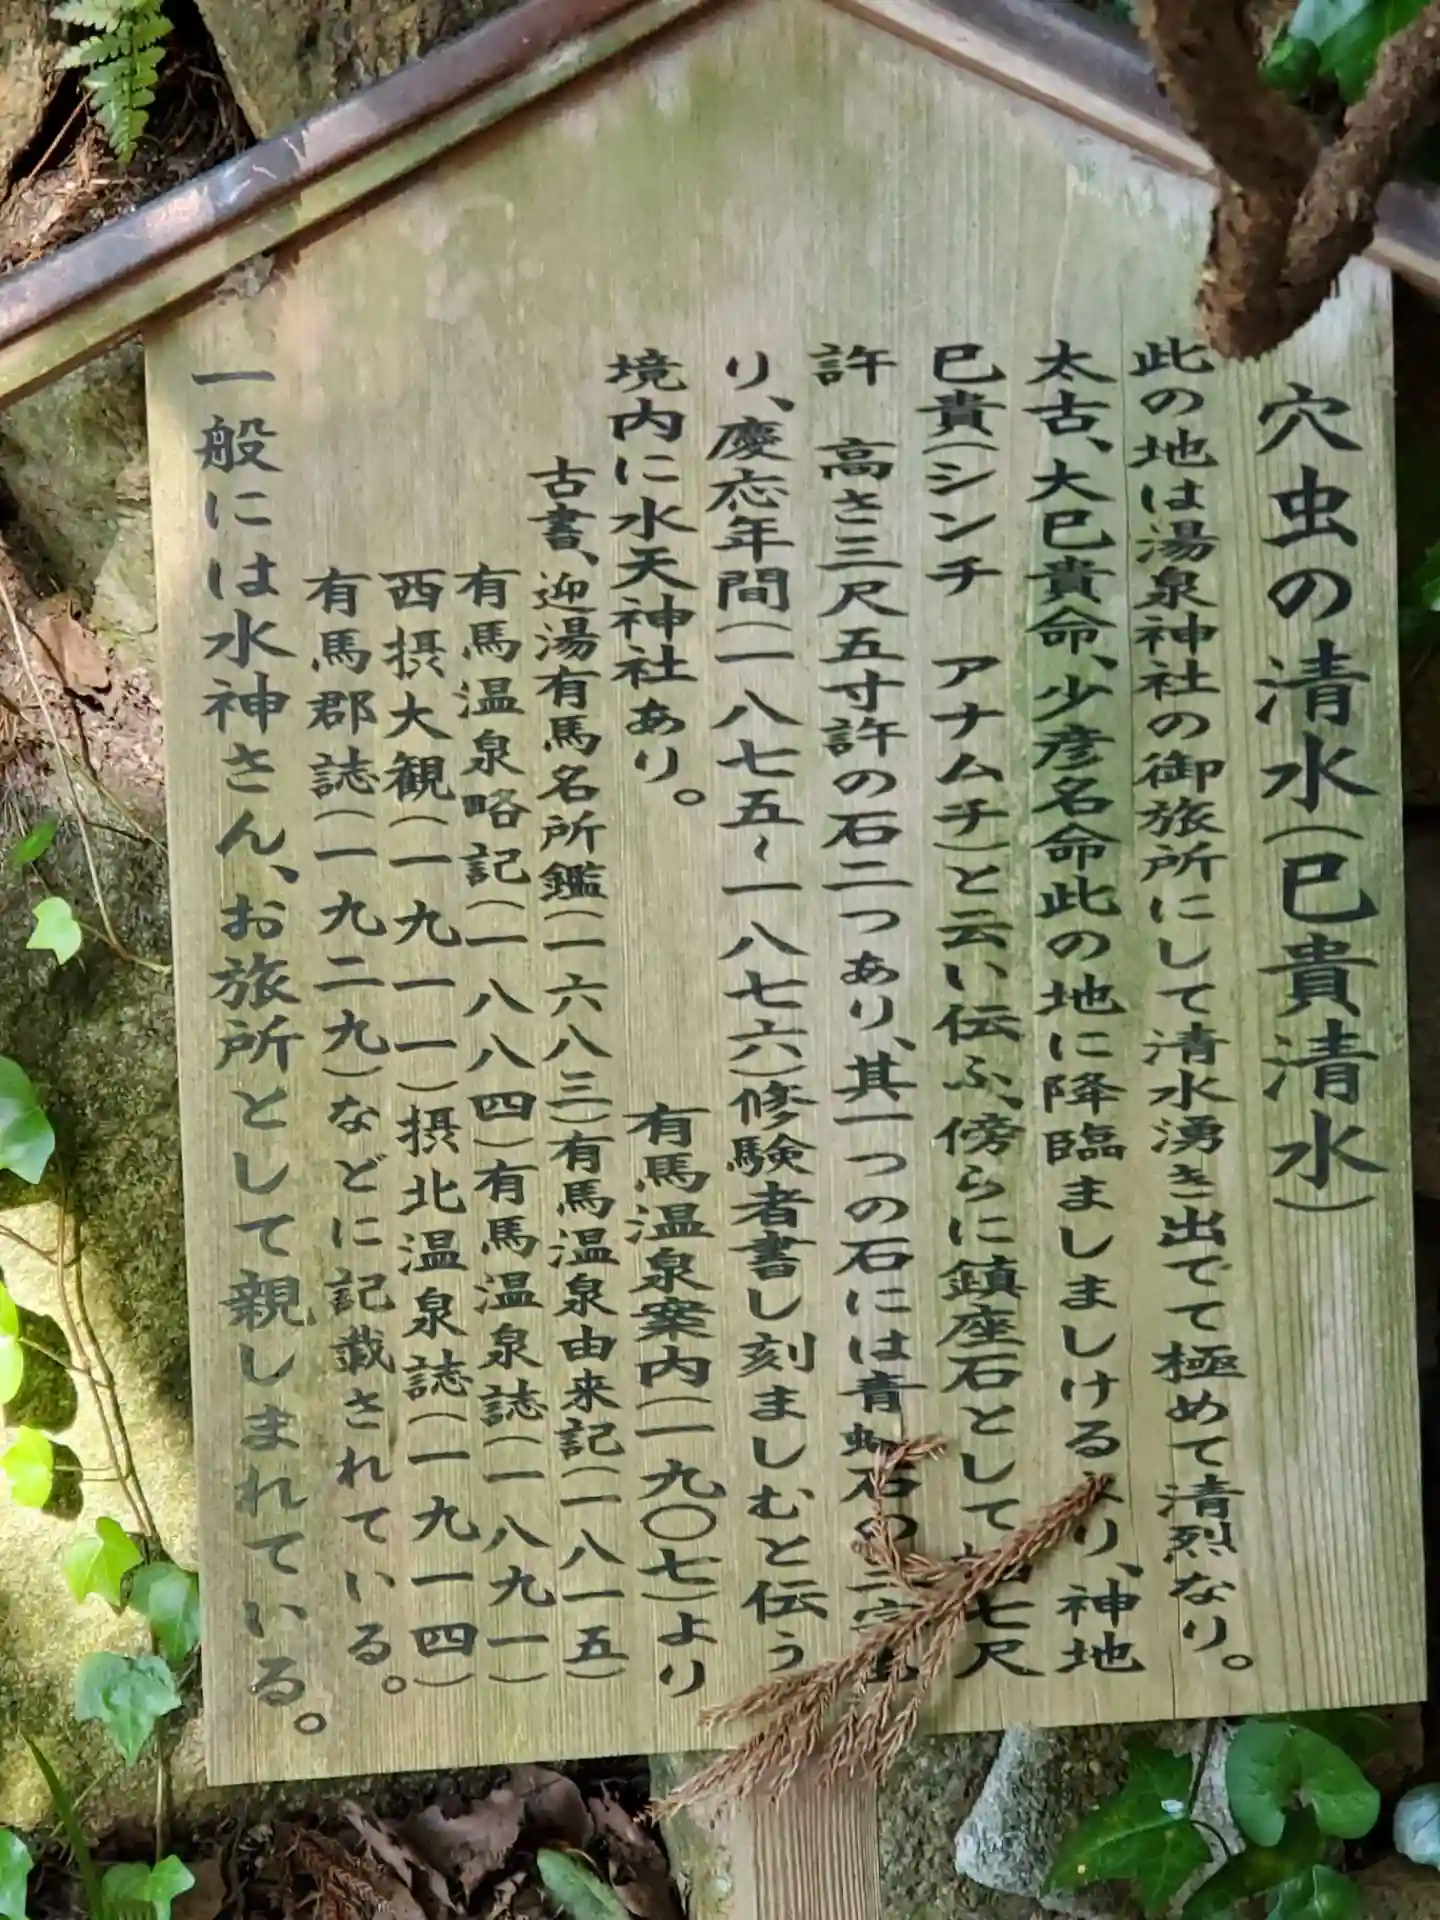 穴虫の清水(巳貴清水)
此の地は湯泉神社の御旅所にして清水湧き出でて極めて清烈なり。
太古、大巳貴命、少彦名命此の地に降臨ましましけるより、神地
巳貴(シンチ アナムチ)と云い伝ふ、傍らに鎮座石として 七尺
許 高さ三尺五寸許の石二つあり、其一つの石には青 石の二字
り、慶応年間(一八七五~一八七六)修験者書し刻ましむと伝う
境内に水天神社あり。 有馬温泉案内(一九〇七)より
古書、迎湯有馬名所鑑(一六八三)有馬温泉由来記(一八一五)
有馬温泉略記(一八八四)有馬温泉誌(一八九一)
西摂大観(一九一一)摂北温泉誌(一九一四)
有馬郡誌(一九二九)などに記載されている。
一般には水神さん、お旅所として親しまれている。